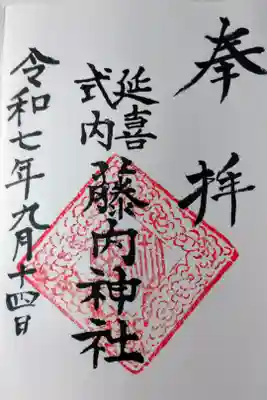 奉拝
延喜
式内
藤内神社
令和七年九月十四日